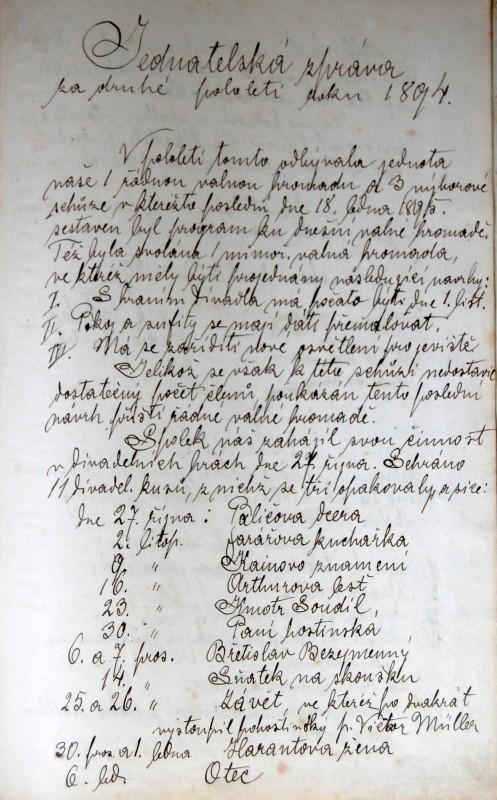 Jednatelská zpráva
za druhé pololetí roku 1894.
V pololetí tomto odbývala jednota
naše 1 řádnou valnou hromadu a 3 výborové
schůze v kterežto poslední dne 18. ledna 1895.
sestaven byl program ku dnešní valné hromadě.
Též byla svolána 1 mimoř. valná hromada,
ve kteréž měly býti projednány následující návrhy:
I. S hraním divadla má počato býti dne 1. list.
II. Pokoj a sufity se mají dáti přemalovat.
III. Má se zaříditi nové osvětlení pro jeviště
Jelikož se však k této schůzi nedostavil
dostatečný počet členů, poukázán tento poslední
návrh příští řádné valné hromadě.
Spolek náš zahájil svoji činnost
v divadelních hrách dne 27. října. Sehráno
11 divadel. kusů, z nichž se tři opakovaly, a sice:
dne 27. října : Paličova dcera
2. listop. Farářova kuchařka
9. " Kainovo znamení
16. " Arthurova lest
23. " Kmotr Soudil,
30. " Paní hostinská
6. a 7. pros. Břetislav Bezejmenný
14. " Sňatek na zkoušku
25. a 26. " Závět, ve kteréž po dvakrát
vystoupil pohostinsky p. Viktor Müller
30. pros. a 1. ledna Harantova žena
6. led. Otec